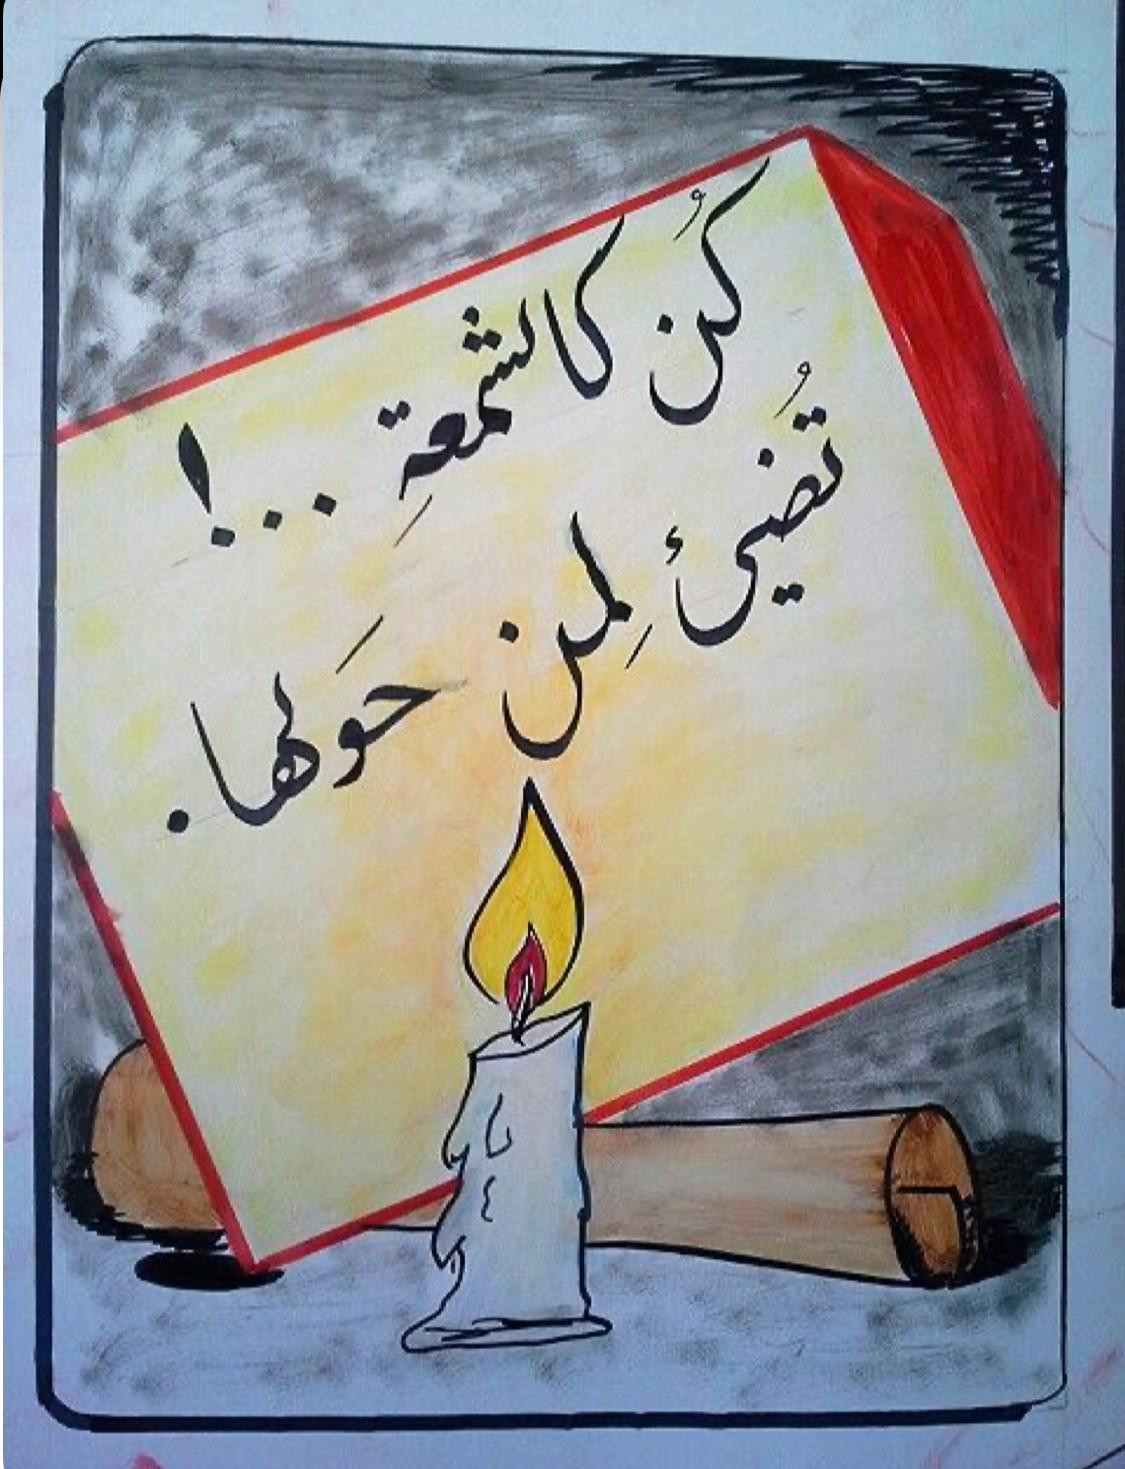 كُن كالشمعةِ ...!
تُضيئ لِمن حَولها.